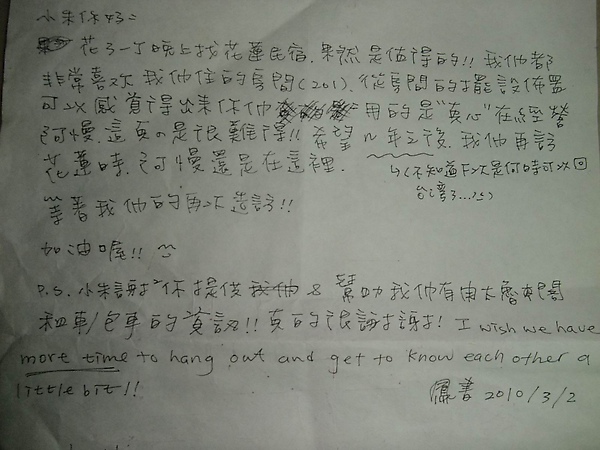 小朱你好：
花了一ㄚ晚上找花蓮民宿，果然是值得的!! 我們都
非常喜欢我們住的房間(201). 從房間的擺設佈置
可以感首得出來你們用的是"真心"在經營
阿慢. 這真的是很難得!! 希望 n 年之後. 我們再訪
花蓮時. 阿慢還是在這裡.
↳(不知道下次是何時可以回
台灣了...)
等著我們的再次造訪!!
加油喔!!
P.S. 小朱謝謝你提供 & 幫助我們有関太魯閣
租車/包車的資訊!! 真的很謝謝! I wish we have
more time to hang out and get to know each other a
little bit!!
2010/3/2